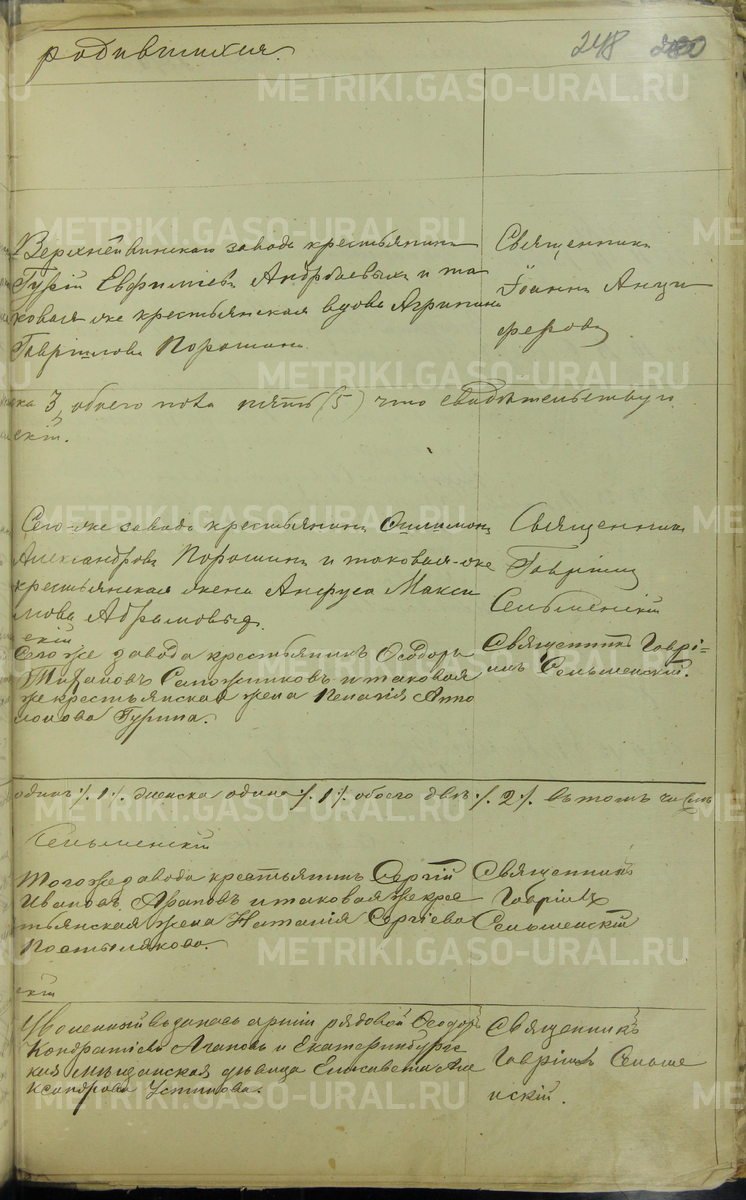 родившихся.
248
METRIKI.GASO-URAL.RU METRIKI.GASO-URAL.RU
Верхнейвинскаго завода крестьянинъ
Гурій Евфиміевъ Андреевыхъ и та
коваяже крестьянская вдова Агрипина
Гавріилова Порошина
Священникъ
Іоаннъ Анци
феровъ
ска 3, обоего пола пять (5) что свидѣтельствую
скій.
Сего-же завода крестьянинъ Филимонъ
Александровъ Порошинъ и таковая-же
крестьянская жена Анфуса Макси
мова Абрамовыхъ.
Священникъ
Гавріилъ
Сельменскій
скій
Сегоже завода крестьянинъ Ѳеодоръ
Сапожниковъ и таковая
же крестьянская жена Пелагія Аппо
лонова Гурина.
Священникъ Гаврі-
илъ Сельменскій.
одинъ ⁒ 1 ⁒ женска одинъ ⁒ 1 ⁒ обоего двѣ ⁒ 2 ⁒ въ томъ числѣ
Сельменскій
Тогоже завода крестьянинъ Сергій
Ивановъ Араповъ и таковая же крес
тьянская жена Наталія Сергіева
Постылякова.
Священникъ
Гавріилъ
Сельменскій
скій
Уволенный въ запасъ арміи рядовой Ѳеодоръ
Кондратіевъ Агаповъ и Екатеринбургс
кая мѣщанская дѣвица Елисавета Але
ксандрова Устинова.
Священникъ
Гавріилъ Сельме
нскій.